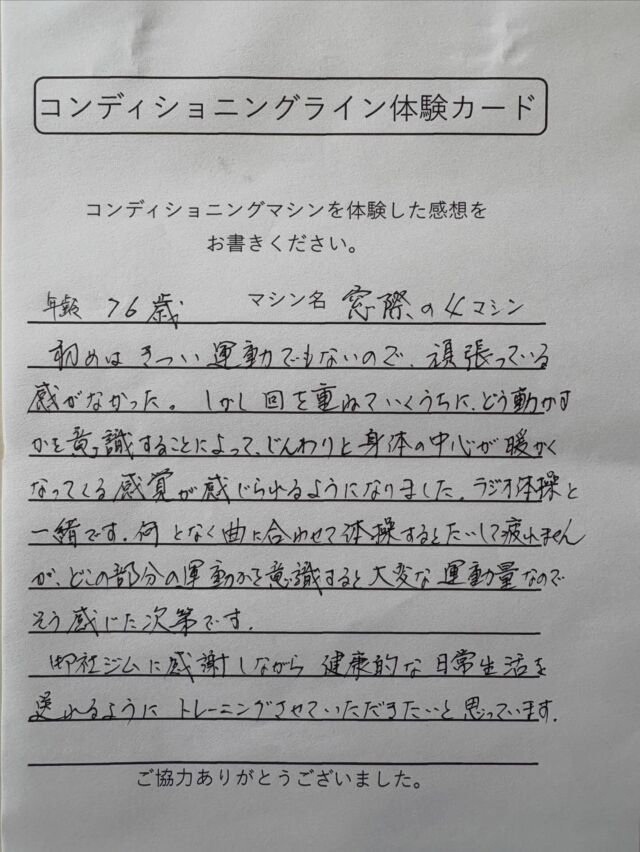 コンディショニングライン体験カード
コンディショニングマシンを体験した感想を
お書きください。
年齢 76歳 マシン名 窓際の4マシン
初めはきつい運動でもないので、頑張っている
感がなかった。しかし回を重ねていくうちに、どう動かす
かを意識することによって、じんわりと身体の中心が暖かく
なってくる感覚が感じられるようになりました。ラジオ体操と
一緒です。何となく曲に合わせて体操するとたいして疲れません
が、どこの部分の運動かを意識すると大変な運動量なので
そう感じた次第です。
御社ジムに感謝しながら健康的な日常生活を
送れるようにトレーニングさせていただきたいと思っています。
ご協力ありがとうございました。